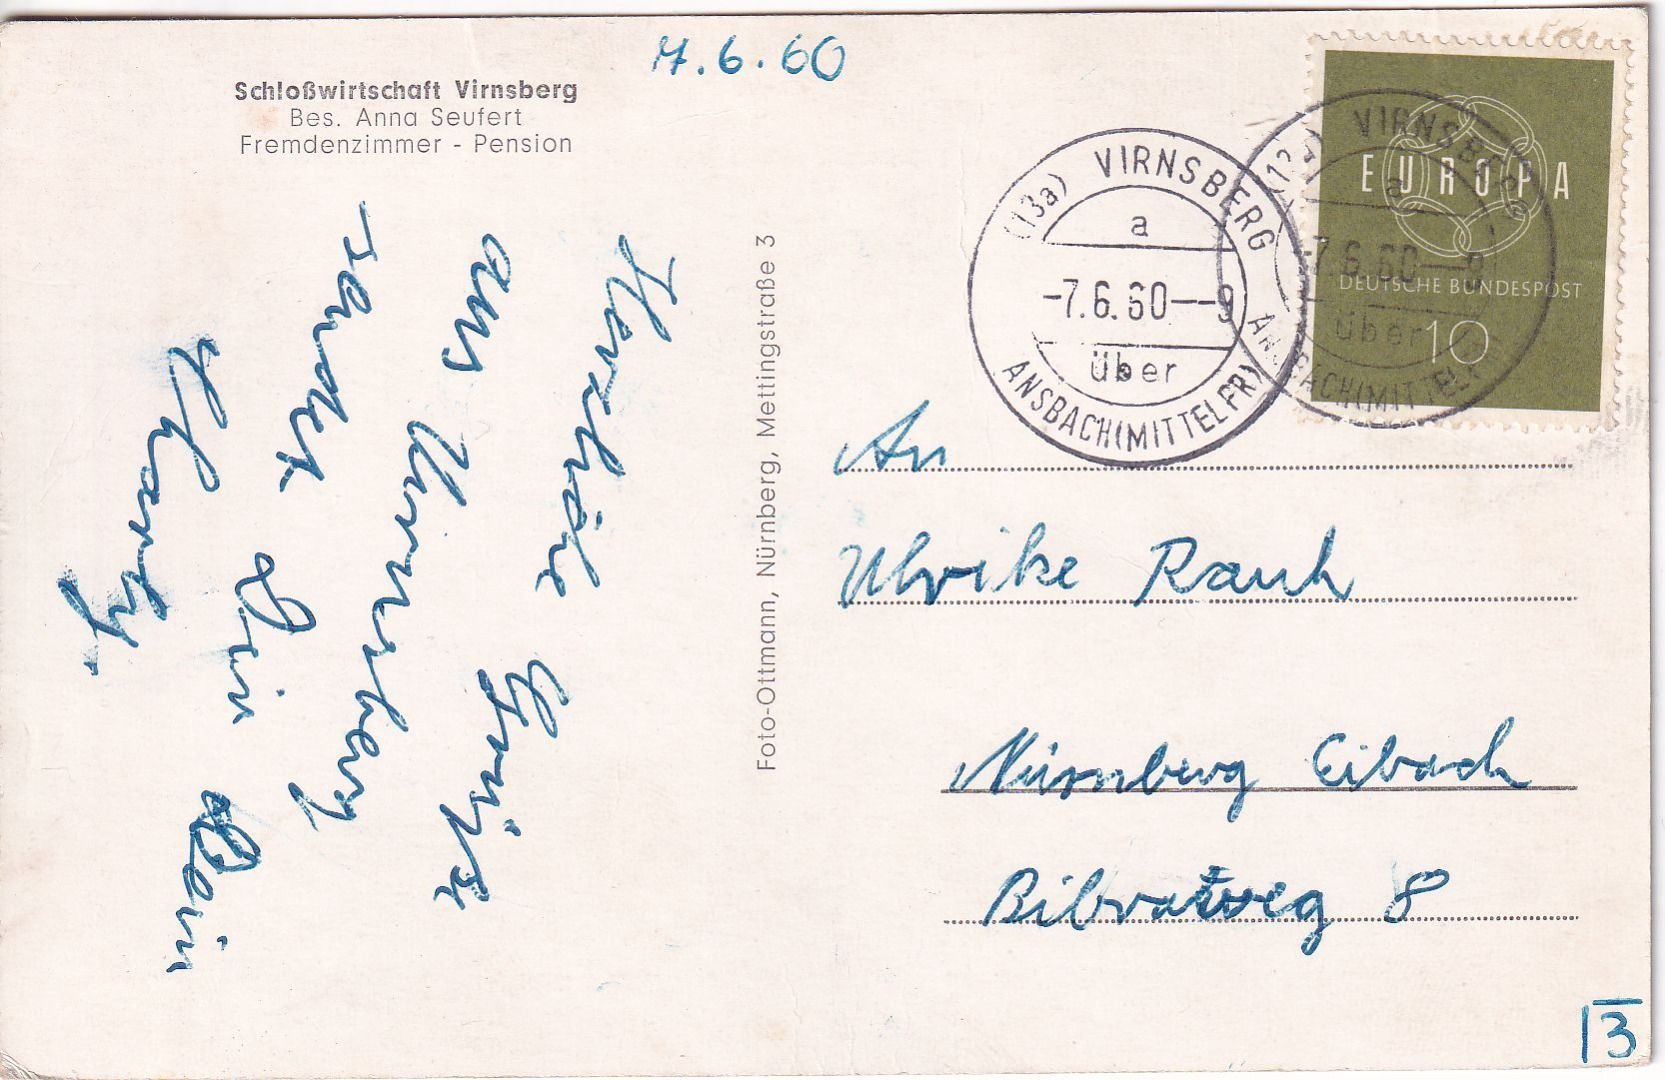 7.6.60
Schloßwirtschaft Virnsberg
Bes. Anna Seufert
Fremdenzimmer - Pension
Herzliche Grüße
aus Virnsberg
sendet Dir Dein
Foto-Ottmann, Nürnberg, Mettingstraße 3
(13a) VIRNSBERG
a
-7.6.60--9
über
ANSBACH(MITTELFR)
(13a) VIRNSBERG
a
-7.6.60--9
über
ANSBACH(MITTELFR)
EUROPA
DEUTSCHE BUNDESPOST
10
An
Ulrike Rauh
Nürnberg Eibach
Bibratweg 8
13